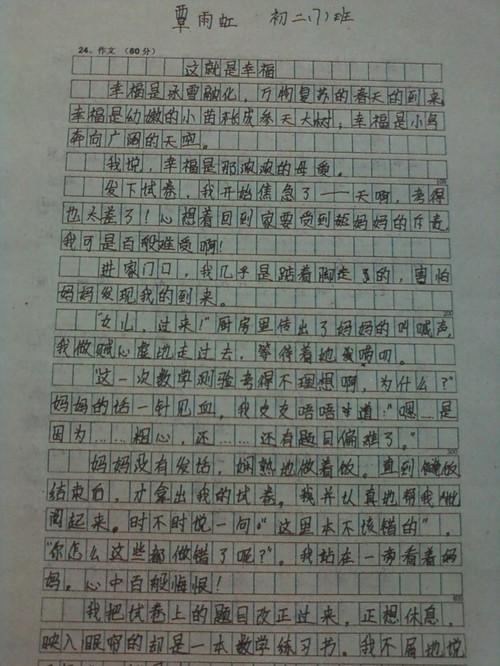 覃雨虹 初二(7)班
24、作文 (60分)
这就是幸福
幸福是冰雪融化，万物复苏的春天的到来，
幸福是幼嫩的小苗长成参天大树；幸福是小鸟
奔向广阔的天空。
我说，幸福是那浓浓的母爱。
100
发下试卷，我开始焦急了——天啊，考得
也太差了！心想着回到家要受到妈妈的斥责，
我可是百般难受啊！
进家门口，我几乎是踮着脚走了的，害怕
妈妈发现我的到来。
200
“女儿，过来！”厨房里传出了妈妈的叫喊声，
我做贼心虚地走过去，等待着她唠叨。
“这一次数学测验考得不理想啊，为什么？”
妈妈的话一针见血，我支支唔唔半道：“嗯……是
因为……粗心，还……还有题目偏难了。”
300
妈妈没有发话，娴熟地做着饭。直到做饭
结束后，才拿出我的试卷。认真地帮我做
起来。时不时说一句：“这里本不该错的”，
“你怎么这些都做错了呢？”。我站在一旁看着妈
妈。心中百般悔恨！
400
我把试卷上的题目改正过来，正想休息，
映入眼帘的却是一本数学练习书。我不屑地说